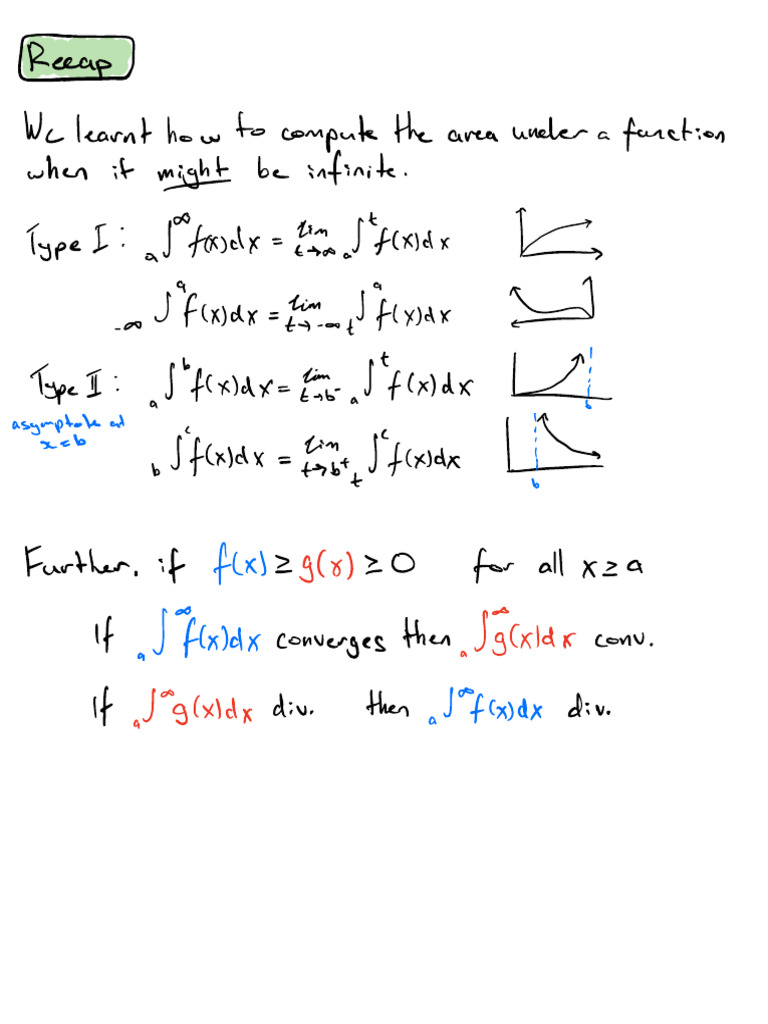 Recap
We learnt how to compute the area under a function
when it might be infinite.
Type I: ₐ∫^∞ f(x)dx = lim t→∞ ₐ∫^t f(x)dx
₋∞∫^a f(x)dx = lim t→-∞ ₜ∫^a f(x)dx
Type II: ₐ∫^b f(x)dx = lim t→b⁻ ₐ∫^t f(x)dx
b
asymptote at
x=b
b∫^c f(x)dx = lim t→b⁺ ₜ∫^c f(x)dx
b
Further, if f(x) ≥ g(x) ≥ 0 for all x ≥ a
If ₐ∫^∞ f(x)dx converges then ₐ∫^∞ g(x)dx conv.
If ₐ∫^∞ g(x)dx div. then ₐ∫^∞ f(x)dx div.